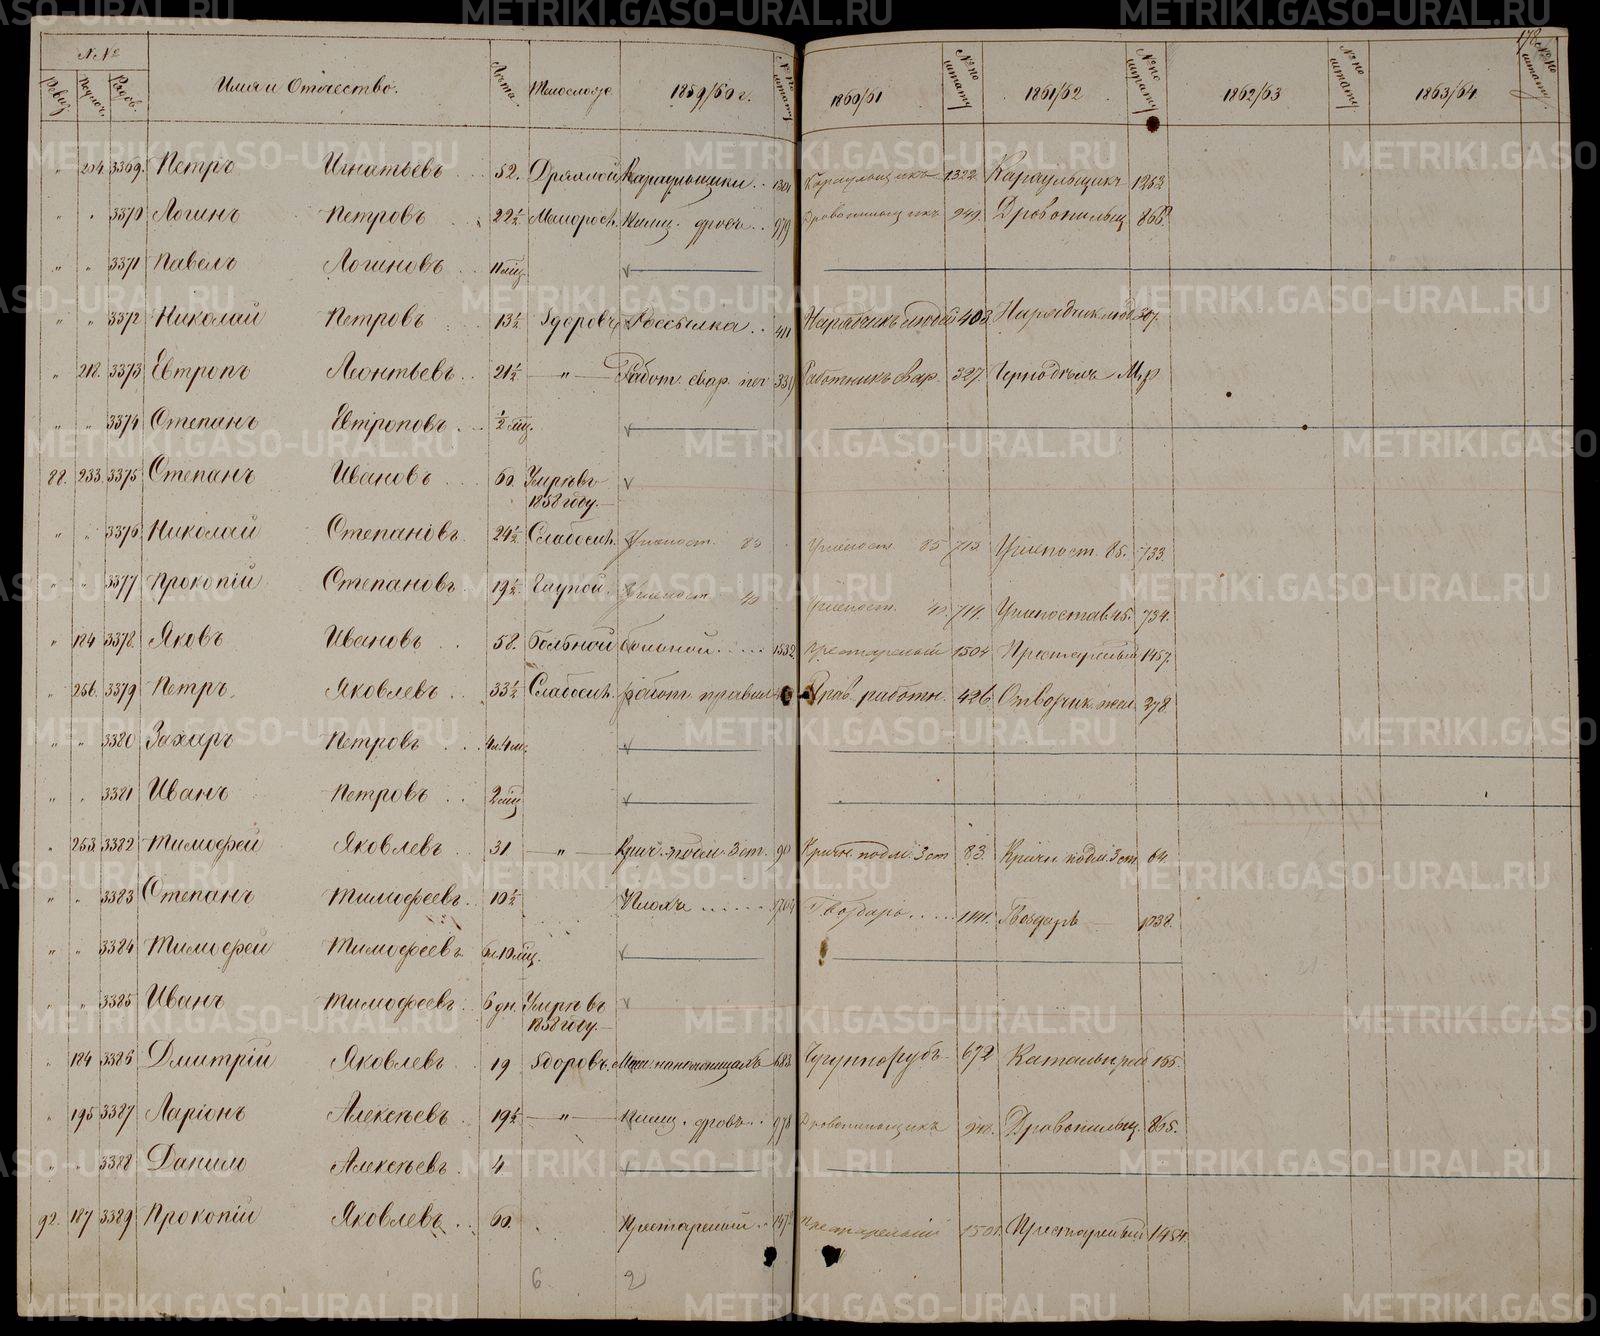 178
№№
Ревиз. Рядов. Имя и Отчество. Лѣта. Тѣлослож. 1859/60 г. № по штату 1860/61 № по штату 1861/62 № по штату 1862/63 № по штату 1863/64 № по штату
" 204. 3369. Петръ Игнатьевъ 52. Дряхлой Караульщики 1301 Караульщикъ 1322 Караульщикъ 1252
" " 3370 Логинъ Петровъ 22½ Малоросл. Пилщ. дровъ 979 Дровопильщикъ 949. Дровопильщ 866.
" " 3371 Павелъ Логиновъ 11 мѣц.
" " 3372 Николай Петровъ 13½ Здоровъ Россылка 411 Нарядчикъ людей 403 Нарядчик. люд. 307.
" 218. 3373 Евтропъ Леонтьевъ 21½ " Работ. свар. печ 339 Работникъ свар. 327 Чернодѣлъ М. р
" " 3374 Степанъ Евтроповъ ½ мѣц.
88. 233. 3375 Степанъ Ивановъ 60. Умрѣ въ
1858 году.
" " 3376 Николай Степановъ 24½ Слабосил. Углепост. 85 Углепост 85 713 Углепост. 85. 733.
" " 3377 Прокопій Степановъ 19½ Глупой. Углепост 40 Углепост. 40 714. Углепостав. 45. 734.
" 184 3378. Яковъ Ивановъ 58. Больной больной 1532 Престарелый 1504 Престарелый 1457.
" 256. 3379 Петръ Яковлевъ 33½ Слабосил. работ. правил Прав. работн. 426 Отворчик. жел. 378.
" " 3380 Захаръ Петровъ 4 л. 4 м.
" " 3381 Иванъ Петровъ 2 мѣц
" 253. 3382 Тимофей Яковлевъ 31 " Крич. подм. 3 ст. 90 Кричн. подм. 3 ст 83. Кричн. подм. 3 ст 64.
" " 3383 Степанъ Тимофеевъ 10½ Гвоздарь 1141. Гвоздарь 1038.
" " 3384 Тимофей Тимофеевъ 6 л. 10 мѣц.
" " 3385 Иванъ Тимофеевъ 6 дн. Умрѣ въ
1858 году.
" 184 3386 Дмитрій Яковлевъ 19 Здоровъ. 683 Чугуннорубъ 672 Катальн. раб 155.
" 195 3387 Ларіонъ Алексѣевъ 19½ " Пилщ. дровъ 978 Дровопильщикъ 948. Дровопильщ. 865.
" " 3388 Данило Алексѣевъ 4
92. 187 3389 Прокопій Яковлевъ 60. Престарелый 147 Престарелый 1501. Престарелый 1454.
6 2
METRIKI.GASO-URAL.RU